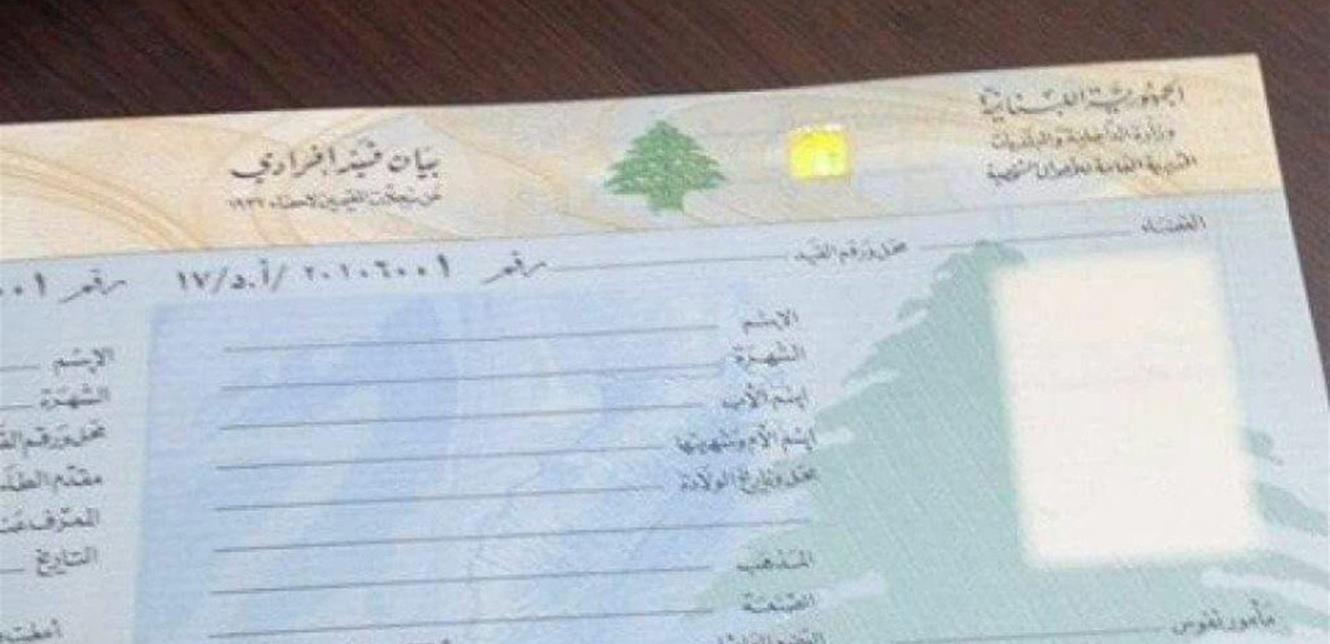 الجمهورية اللبنانية
وزارة الداخلية والبلديات
المديرية العامة للأحوال الشخصية
بيان قيد إفرادي
عن سجلات المقيمين لاحصاء ١٩٣٢
القضاء
محل ورقم القيد
رقم ٢٠١٠٦٠٠١ /أ.د/١٧
الإسم
الشهرة
إسم الأب
إسم الأم وشهرتها
محل وتاريخ الولادة
المذهب
مأمور نفوس
رقم ٠٠١
الإسم
الشهرة
محل ورقم
مقدم
التاريخ